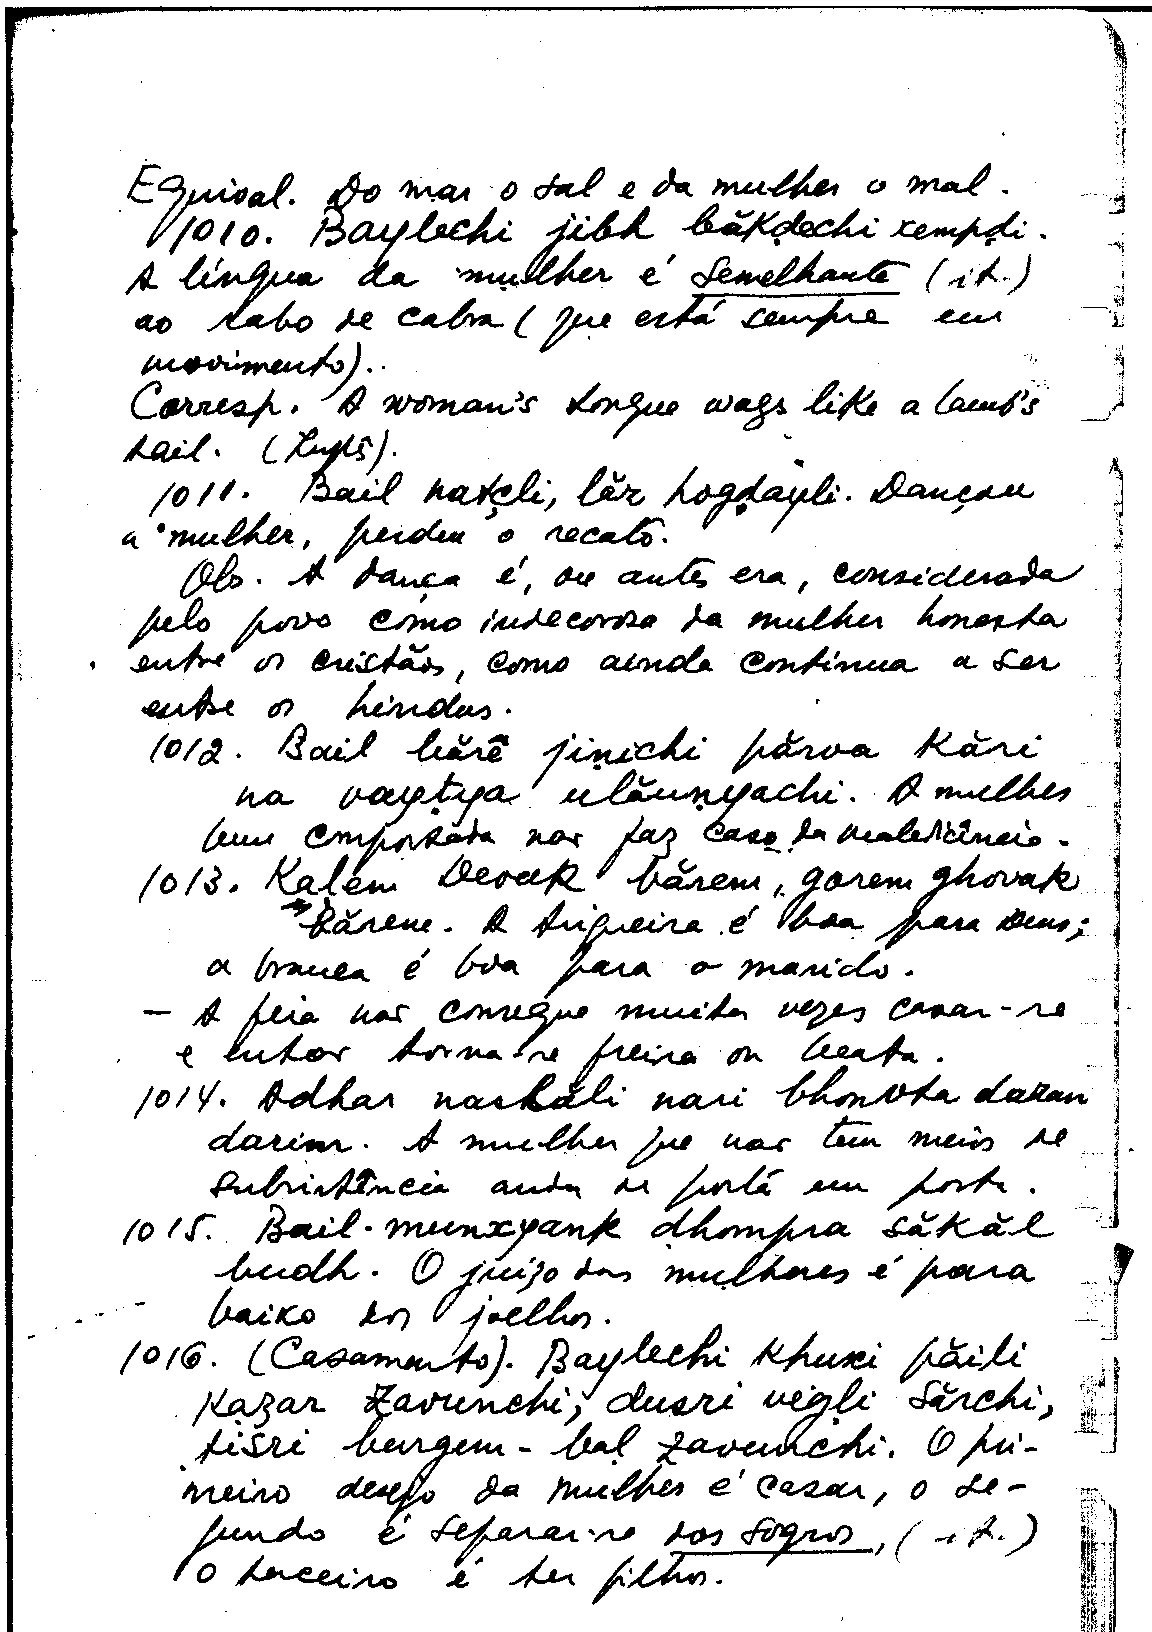 Equival. Do mar o sal e da mulher o mal.
1010. Baylechi jibh băkḍechi xempḍi.
A língua da mulher é semelhante (it.)
ao rabo de cabra (que está sempre em
movimento)..
Corresp. A woman's tongue wags like a lamb's
tail. 
1011. Bail natçli, lăz hogḍayli. Dançou
a mulher, perdeu o recato.
Obs. A dança é, ou antes era, considerada
pelo povo como indecorosa da mulher honesta
entre os cristãos, como ainda continua a ser
entre os hindus.
1012. Bail bărẽ jiṇichi părva kări
na vayṭya ulăuṇyachi. A mulher
bem comportada não faz caso da maledicência.
1013. Kalem Devak bărem, gorem ghovak
bărem. A trigueira é boa para Deus;
a branca é boa para o marido.
— A feia não consegue muitas vezes casar-se
e então torna-se freira ou beata.
1014. Adhar naslăli nari bhonvta daran
daran. A mulher que não tem meios de
subsistência anda de porta em porta.
1015. Bail-munxyank dhompra săkăl
budh. O juízo das mulheres é para
baixo dos joelhos.
1016. (Casamento). Baylechi khuxi păili
kazar zavunchi; dusri vegli sărchi,
tisri burgem-bal zavunchi. O pri-
meiro desejo da mulher é casar, o se-
gundo é separar-se dos sogros, (it.)
o terceiro é ter filhos.